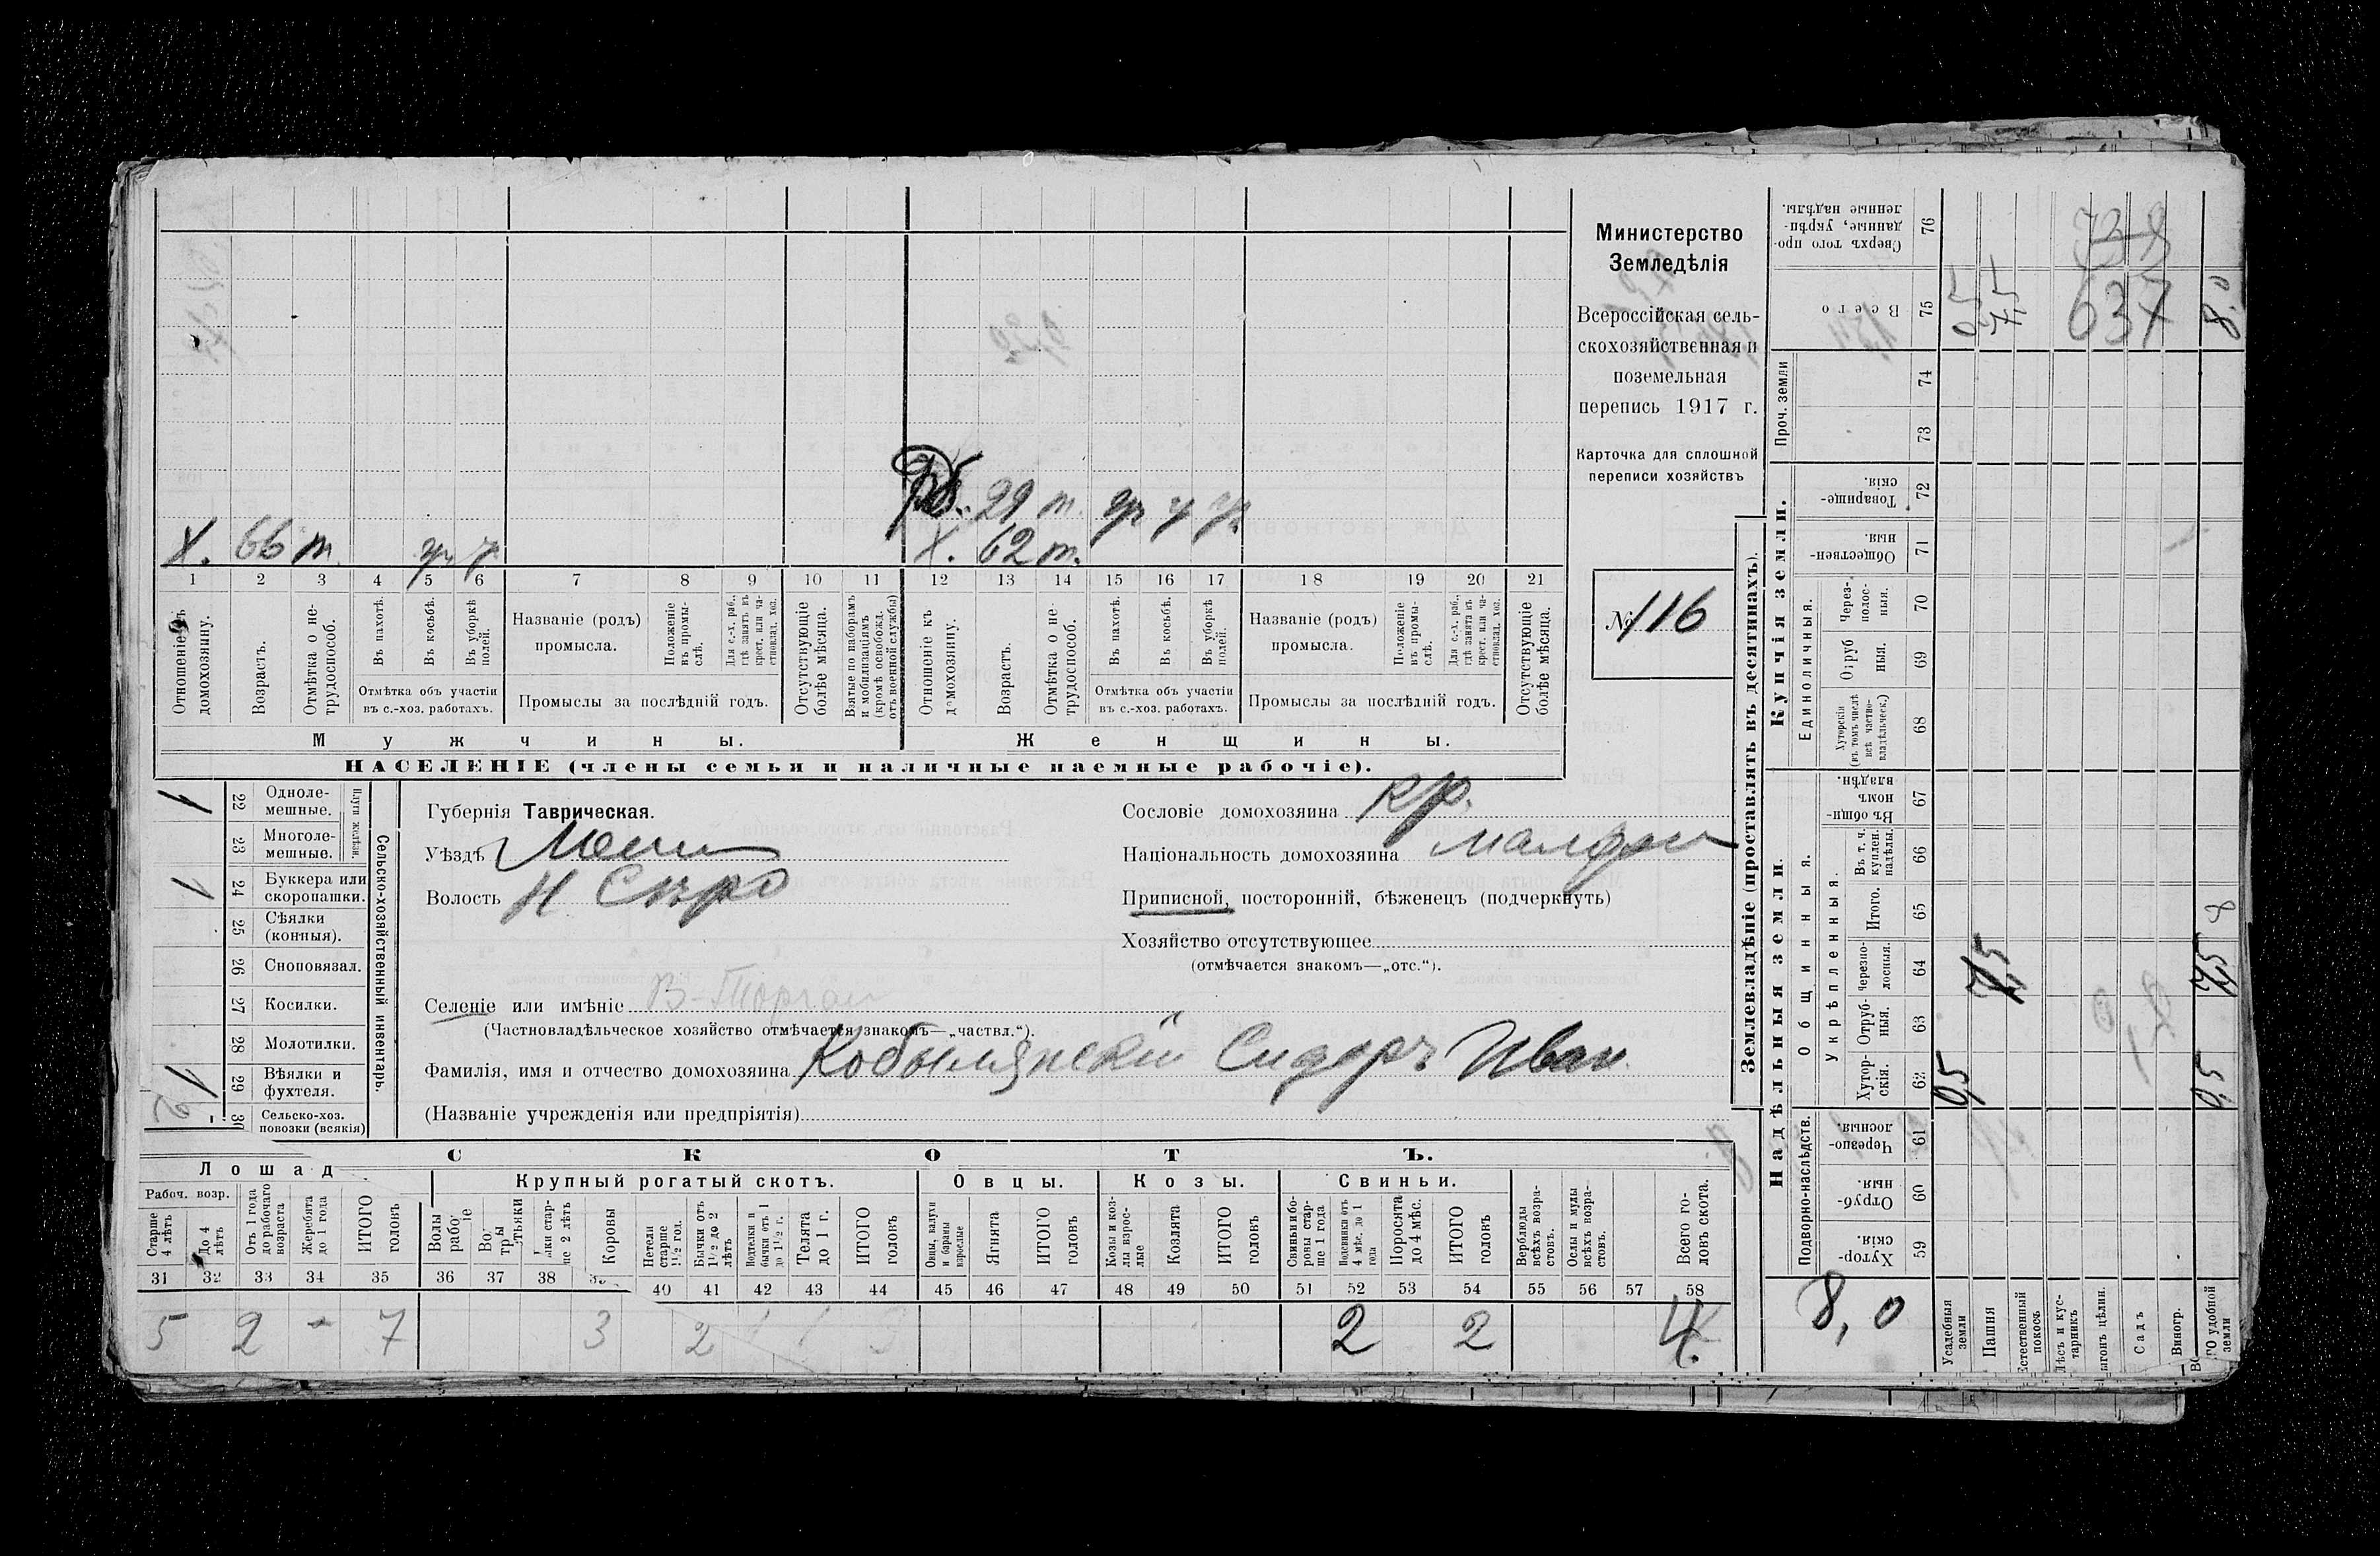 Министерство
Земледѣлія
Всероссійская сель-
скохозяйственная и
поземельная
перепись 1917 г.
Карточка для сплошной
переписи хозяйствъ
№ 116
Х. 66 т.
29
Х. 62 т.
1 2 3 4 5 6 7 8 9 10 11 12 13 14 15 16 17 18 19 20 21
Отношеніе къ домохозяину.
Возрастъ.
Отмѣтка о не-трудоспособ.
Въ пахотѣ.
Въ косьбѣ.
Въ уборкѣ полей.
Отмѣтка объ участіи
въ с.-хоз. работахъ.
Названіе (родъ)
промысла.
Положеніе въ промы-слѣ.
Для с.-х. раб., гдѣ занятъ въ крест. или ча-стновлад. хоз.
Промыслы за послѣдній годъ.
Отсутствующіе болѣе мѣсяца.
Взятые по наборамъ и мобилизаціямъ (кромѣ освобожд. отъ военной службы)
Отношеніе къ домохозяину.
Возрастъ.
Отмѣтка о не-трудоспособ.
Въ пахотѣ.
Въ косьбѣ.
Въ уборкѣ полей.
Отмѣтка объ участіи
въ с.-хоз. работахъ.
Названіе (родъ)
промысла.
Положеніе въ промы-слѣ.
Для с.-х. раб., гдѣ занята въ крест. или ча-стновлад. хоз.
Промыслы за послѣдній годъ.
Отсутствующіе болѣе мѣсяца.
Мужчины.
Женщины.
НАСЕЛЕНІЕ (члены семьи и наличные наемные рабочіе).
1 22 Одноле-мешные.
23 Многоле-мешные.
Плуги желѣзн.
1 24 Буккера или скоропашки.
25 Сѣялки (конныя).
26 Сноповязал.
27 Косилки.
28 Молотилки.
1 29 Вѣялки и фухтеля.
2 30 Сельско-хоз. повозки (всякія)
Сельско-хозяйственный инвентарь.
Губернія Таврическая.
Уѣздъ
Волость Н Сѣро
Селеніе или имѣніе В-Торгаи
(Частновладѣльческое хозяйство отмѣчается знакомъ—„частвл.“).
Фамилія, имя и отчество домохозяина Кобылянскій Сидоръ Иван.
(Названіе учрежденія или предпріятія)
Сословіе домохозяина кр.
Національность домохозяина малорос
Приписной, посторонній, бѣженецъ (подчеркнуть)
Хозяйство отсутствующее
(отмѣчается знакомъ—„отс.“).
СКОТЪ.
Лошад
Рабоч. возр.
Старше 4 лѣтъ
До 4 лѣтъ
Отъ 1 года до рабочаго возраста
Жеребята до 1 года
ИТОГО головъ
Крупный рогатый скотъ.
Волы
Коровы
Нетели старше 1½ год.
Бычки отъ 1½ до 2 лѣтъ
Подтелки и бычки отъ 1 до 1½ г.
Телята до 1 г.
ИТОГО головъ
Овцы.
Овцы, валухи и бараны взрослые
Ягнята
ИТОГО головъ
Козы.
Козы и коз-лы взрос-лые
Козлята
ИТОГО головъ
Свиньи.
Свиньи и бо-ровы стар-ше 1 года
Подсвинки отъ 4 мѣс. до 1 года
Поросята до 4 мѣс.
ИТОГО головъ
Верблюды всѣхъ возра-стовъ.
Ослы и мулы всѣхъ возра-стовъ.
Всего го-ловъ скота.
31 32 33 34 35 36 37 38 40 41 42 43 44 45 46 47 48 49 50 51 52 53 54 55 56 57 58
5 2 - 7 3 2 2 2 4
Землевладѣніе (проставлять въ десятинахъ).
Надѣльныя земли.
Купчія земли.
Проч. земли
Сверхъ того про-данные, укрѣп-ленные надѣлы. 76
Всего 75
74
73
Товарище-скія. 72
Обществен-ныя. 71
Единоличныя.
Через-полос-ныя. 70
Отруб ныя. 69
Хуторскія (въ томъ числѣ всѣ частно-владѣльческ.) 68
Общинныя.
Въ общи-номъ владѣн. 67
Укрѣпленныя.
Въ т. ч. куплен. надѣлы. 66
Итого. 65
Черезпо-лосныя. 64
Отруб-ныя. 63
Хутор-скія. 62
Подворно-наслѣдств.
Черезпо-лосныя. 61
Отруб-ныя. 60
Хутор-скія. 59
Усадебныя земли
Пашня
Естественный покосъ
Лѣсъ и кус-тарникъ
ыгонъ цѣлин.
Садъ
Виногр.
ГО удобной земли
8,0
0,5
7,5
637
8,0
7,5
0,5
7,5
0,5